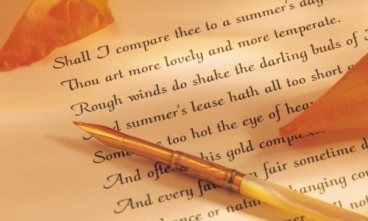 Shall I compare thee to a summer's day
Thou art more lovely and more temperate.
Rough winds do shake the darling buds of
summer's lease hath all too short
too hot the eye of
And his gold
And every fair sometime
or changing